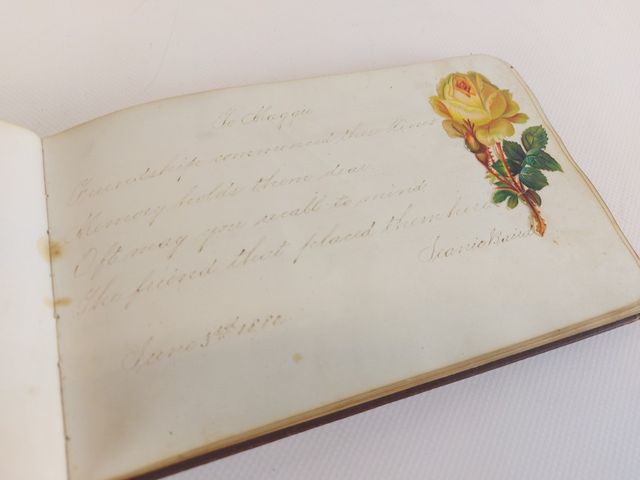 To Maggie
Friendship commenced these lines
Memory holds them dear
Oft may you recall to mind
The friend that placed them here
Jeanie
June 3rd